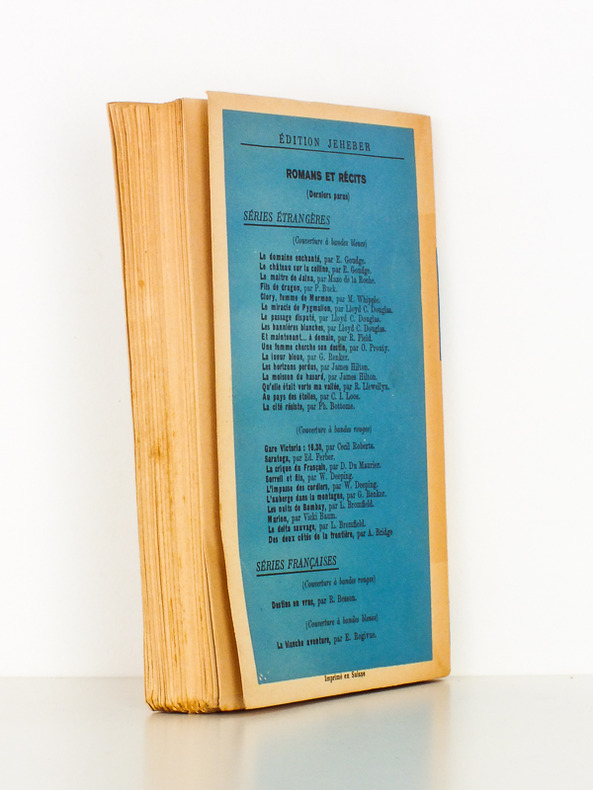 ÉDITION JEHEBER
ROMANS ET RÉCITS
(Derniers parus)
SÉRIES ÉTRANGÈRES
(Couverture à bandes bleues)
Le domaine enchanté, par E. Goudge.
Le château sur la colline, par E. Goudge.
Le maître de Jalna, par Mazo de la Roche.
Fils de dragon, par P. Buck.
Glory, femme de Mormon, par M. Whipple.
Le miracle de Pygmalion, par Lloyd C. Douglas.
Le passage disputé, par Lloyd C. Douglas.
Les bannières blanches, par Lloyd C. Douglas.
Et maintenant... à demain, par R. Field.
Une femme cherche son destin, par O. Prouty.
La lueur bleue, par G. Renker.
Les horizons perdus, par James Hilton.
La moisson du hasard, par James Hilton.
Qu'elle était verte ma vallée, par R. Llewellyn.
Au pays des étoiles, par C. I. Loos.
La cité résiste, par Ph. Bottome.
(Couverture à bandes rouges)
Gare Victoria : 16.30, par Cecil Roberts.
Saratoga, par Ed. Ferber.
La crique du Français, par D. Du Maurier.
Sorrell et fils, par W. Deeping.
L'impasse des cordiers, par W. Deeping.
L'auberge dans la montagne, par G. Renker.
Les nuits de Bombay, par L. Bromfield.
Marion, par Vicki Baum.
Le delta sauvage, par L. Bromfield.
Des deux côtés de la frontière, par A. Bridge
SÉRIES FRANÇAISES
(Couverture à bandes rouges)
Destins en vrac, par R. Besson.
(Couverture à bandes bleues)
La blanche aventure, par E. Regivue.
Imprimé en Suisse